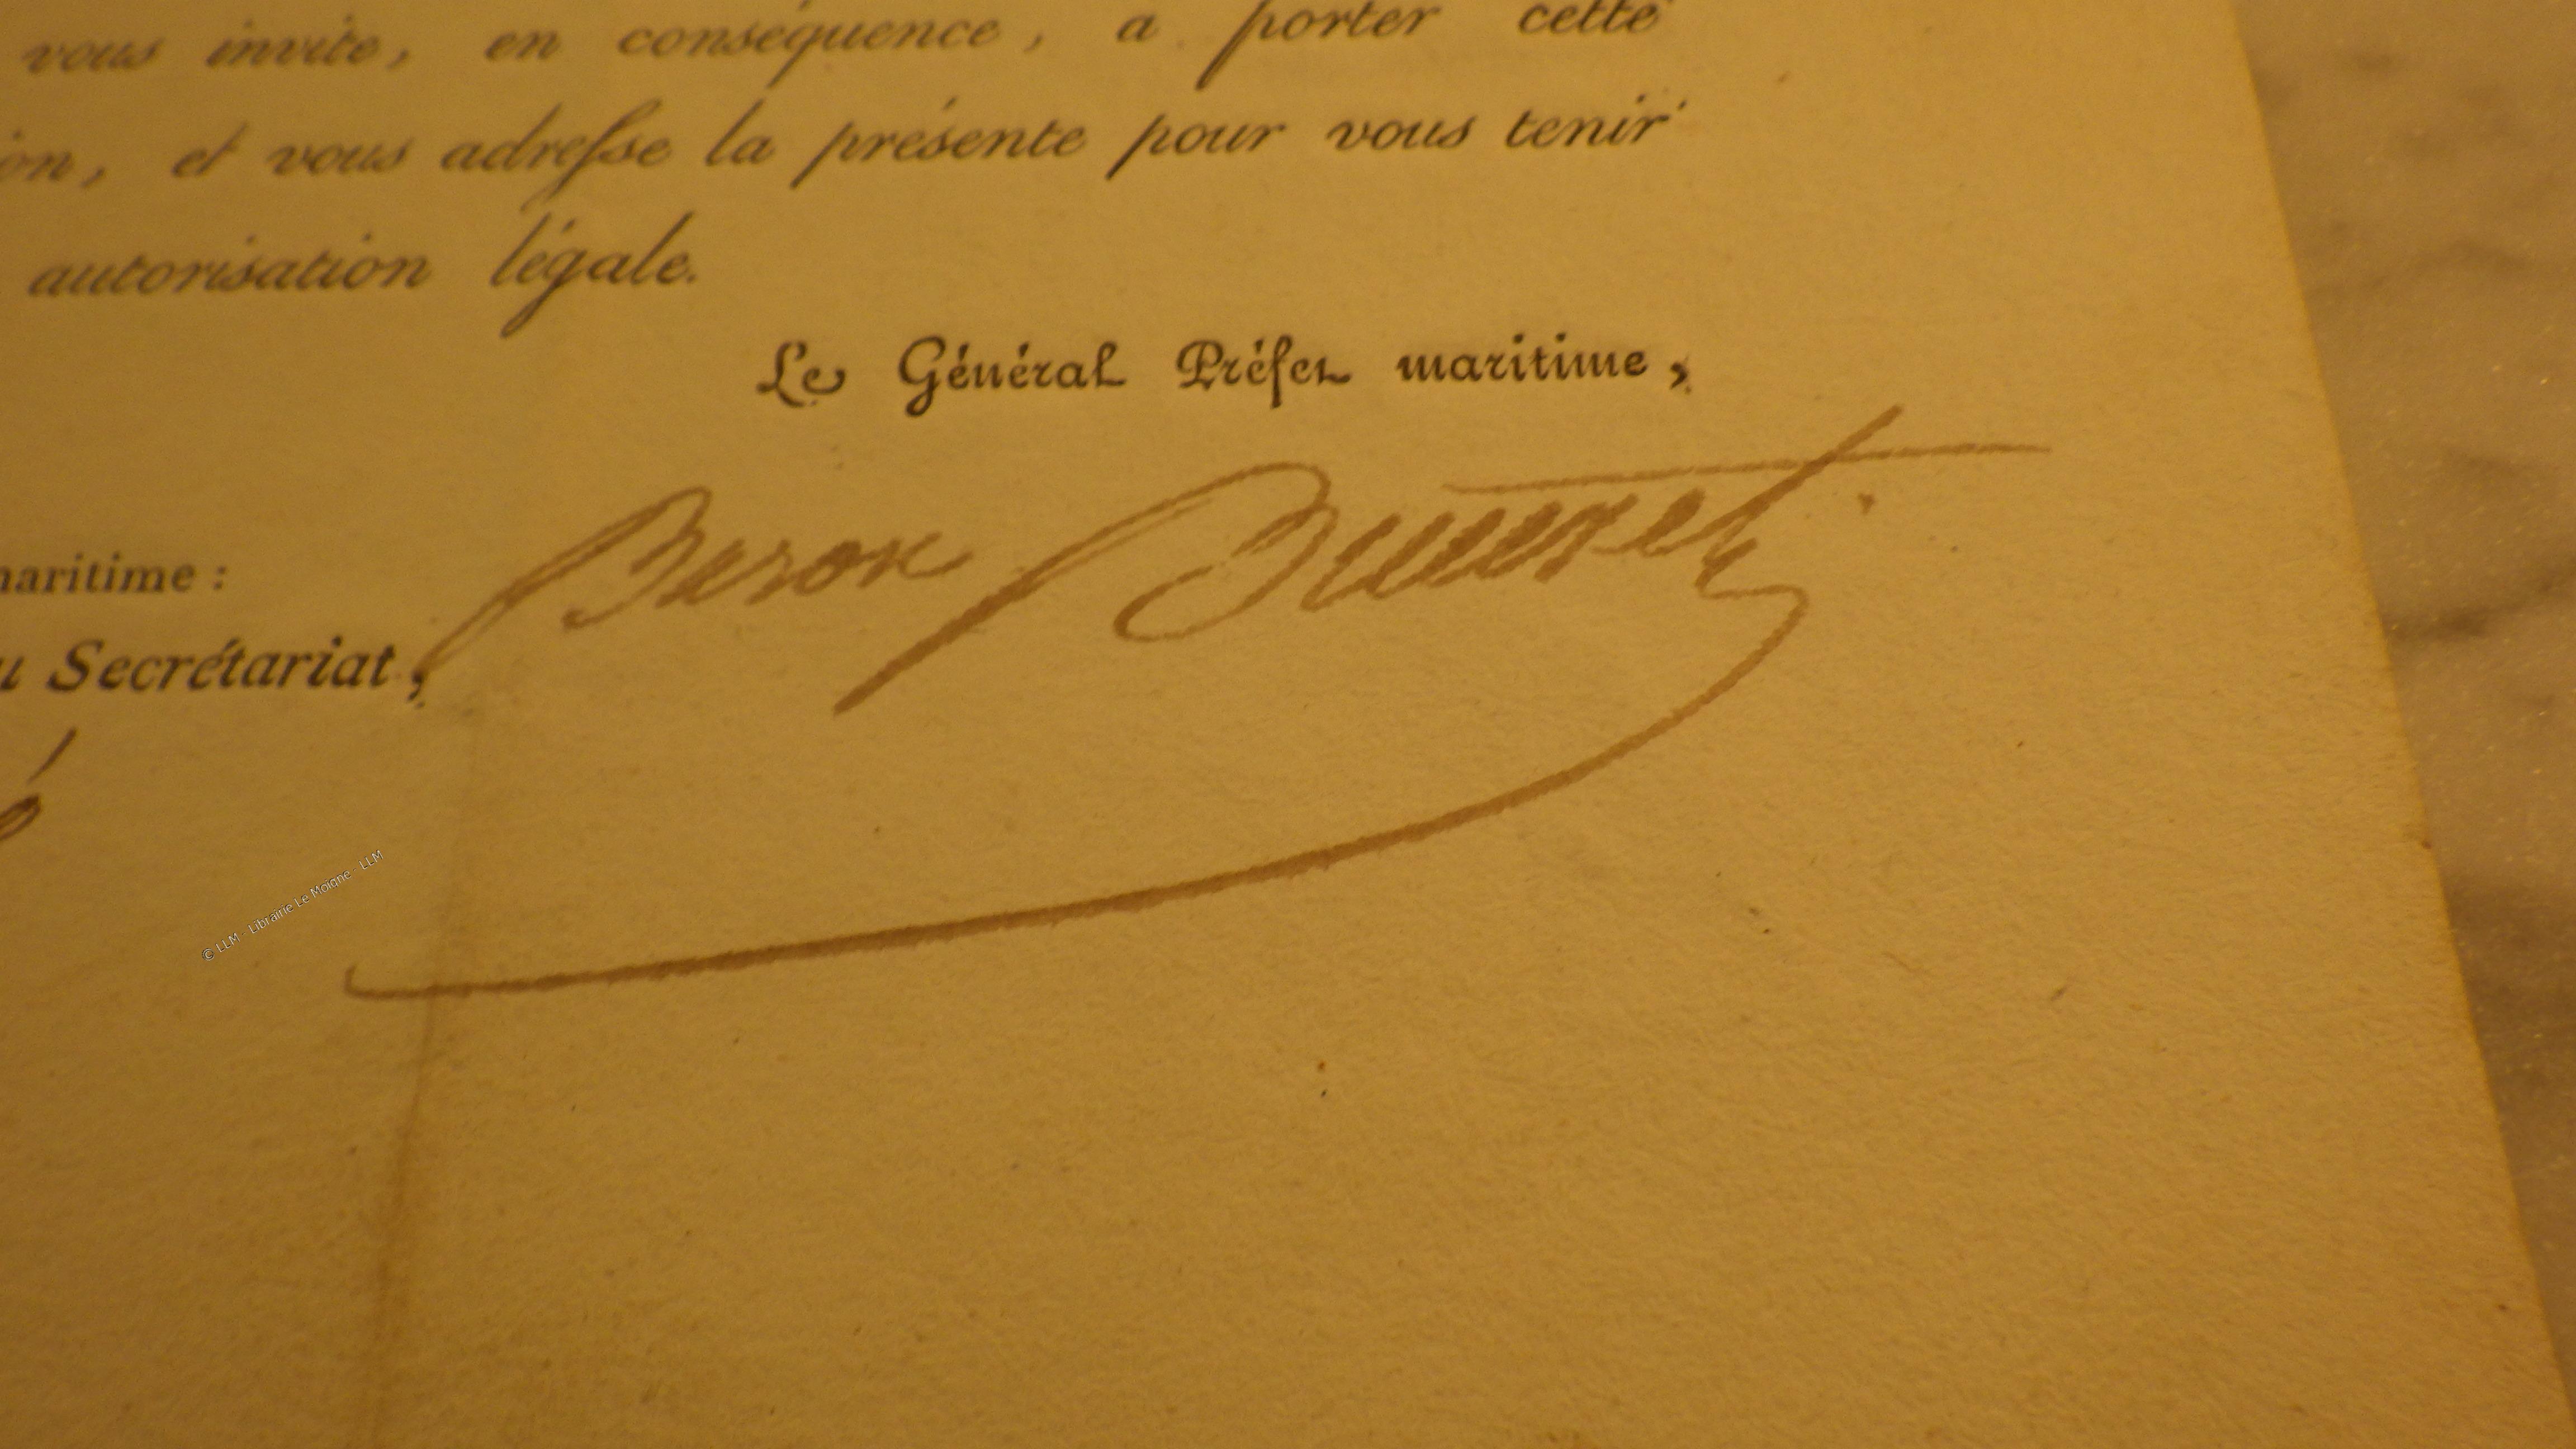 vous invite, en conséquence, a porter cette
ion, et vous adresse la présente pour vous tenir
autorisation légale.
Le Général Préfet maritime,
maritime :
u Secrétariat,
Baron
© LLM - Librairie Le Moigne - LLM